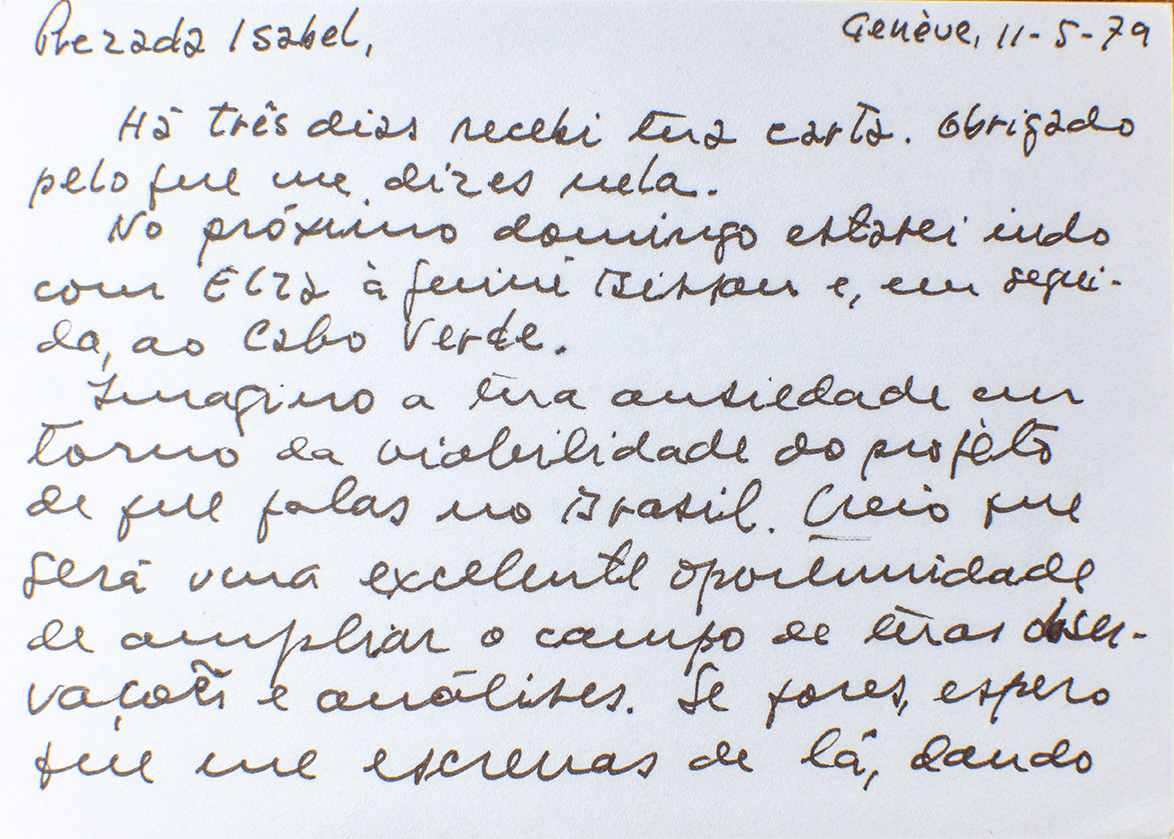 Prezada Isabel,
Genève, 11-5-79
Há três dias recebi tua carta. Obrigado
pelo que me dizes nela.
No próximo domingo estarei indo
com Elza à Guiné Bissau e, em segui-
da, ao Cabo Verde.
Imagino a tua ansiedade em
torno da viabilidade do projeto
de que falas no Brasil. Creio que
será uma excelente oportunidade
de ampliar o campo de tuas obser-
vações e análises. Se fores, espero
que me escrevas de lá, dando